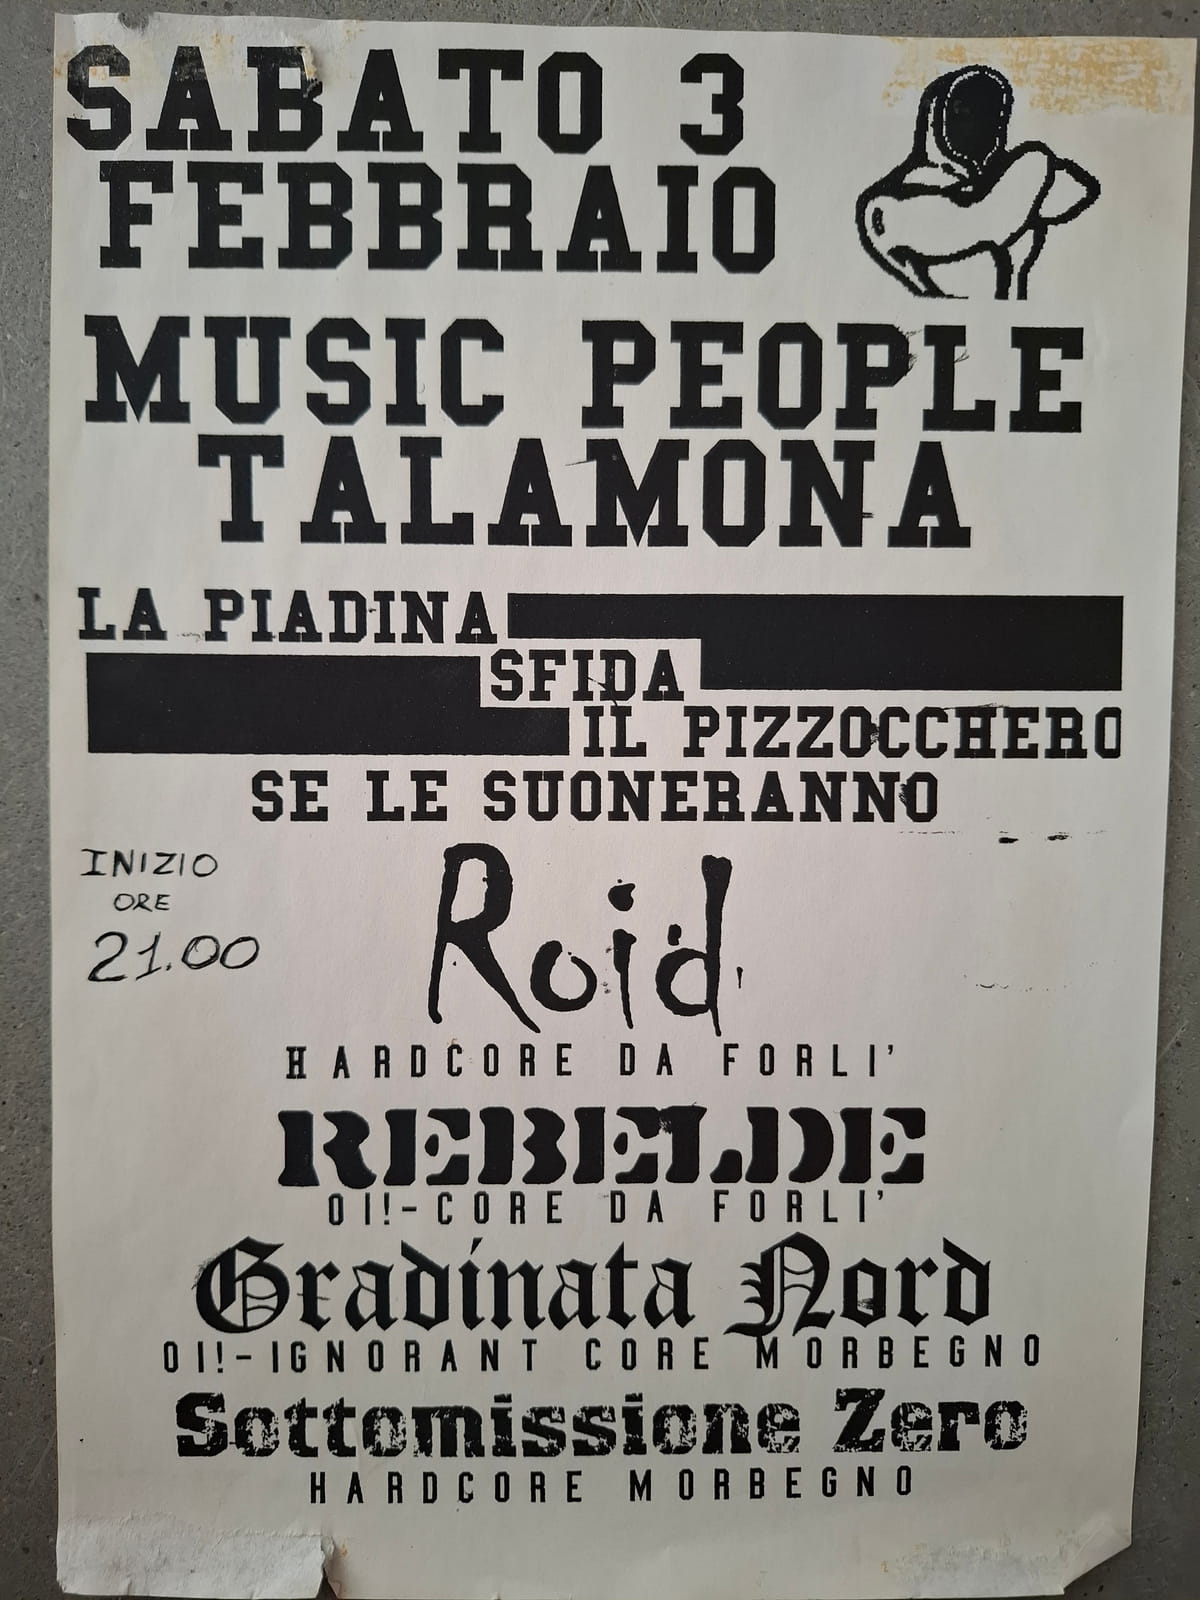 SABATO 3
FEBBRAIO
MUSIC PEOPLE
TALAMONA
LA PIADINA
SFIDA
IL PIZZOCCHERO
SE LE SUONERANNO
INIZIO
ORE
21.00
Roid
HARDCORE DA FORLI'
REBELDE
OI!-CORE DA FORLI'
Gradinata Nord
OI!-IGNORANT CORE MORBEGNO
Sottomissione Zero
HARDCORE MORBEGNO